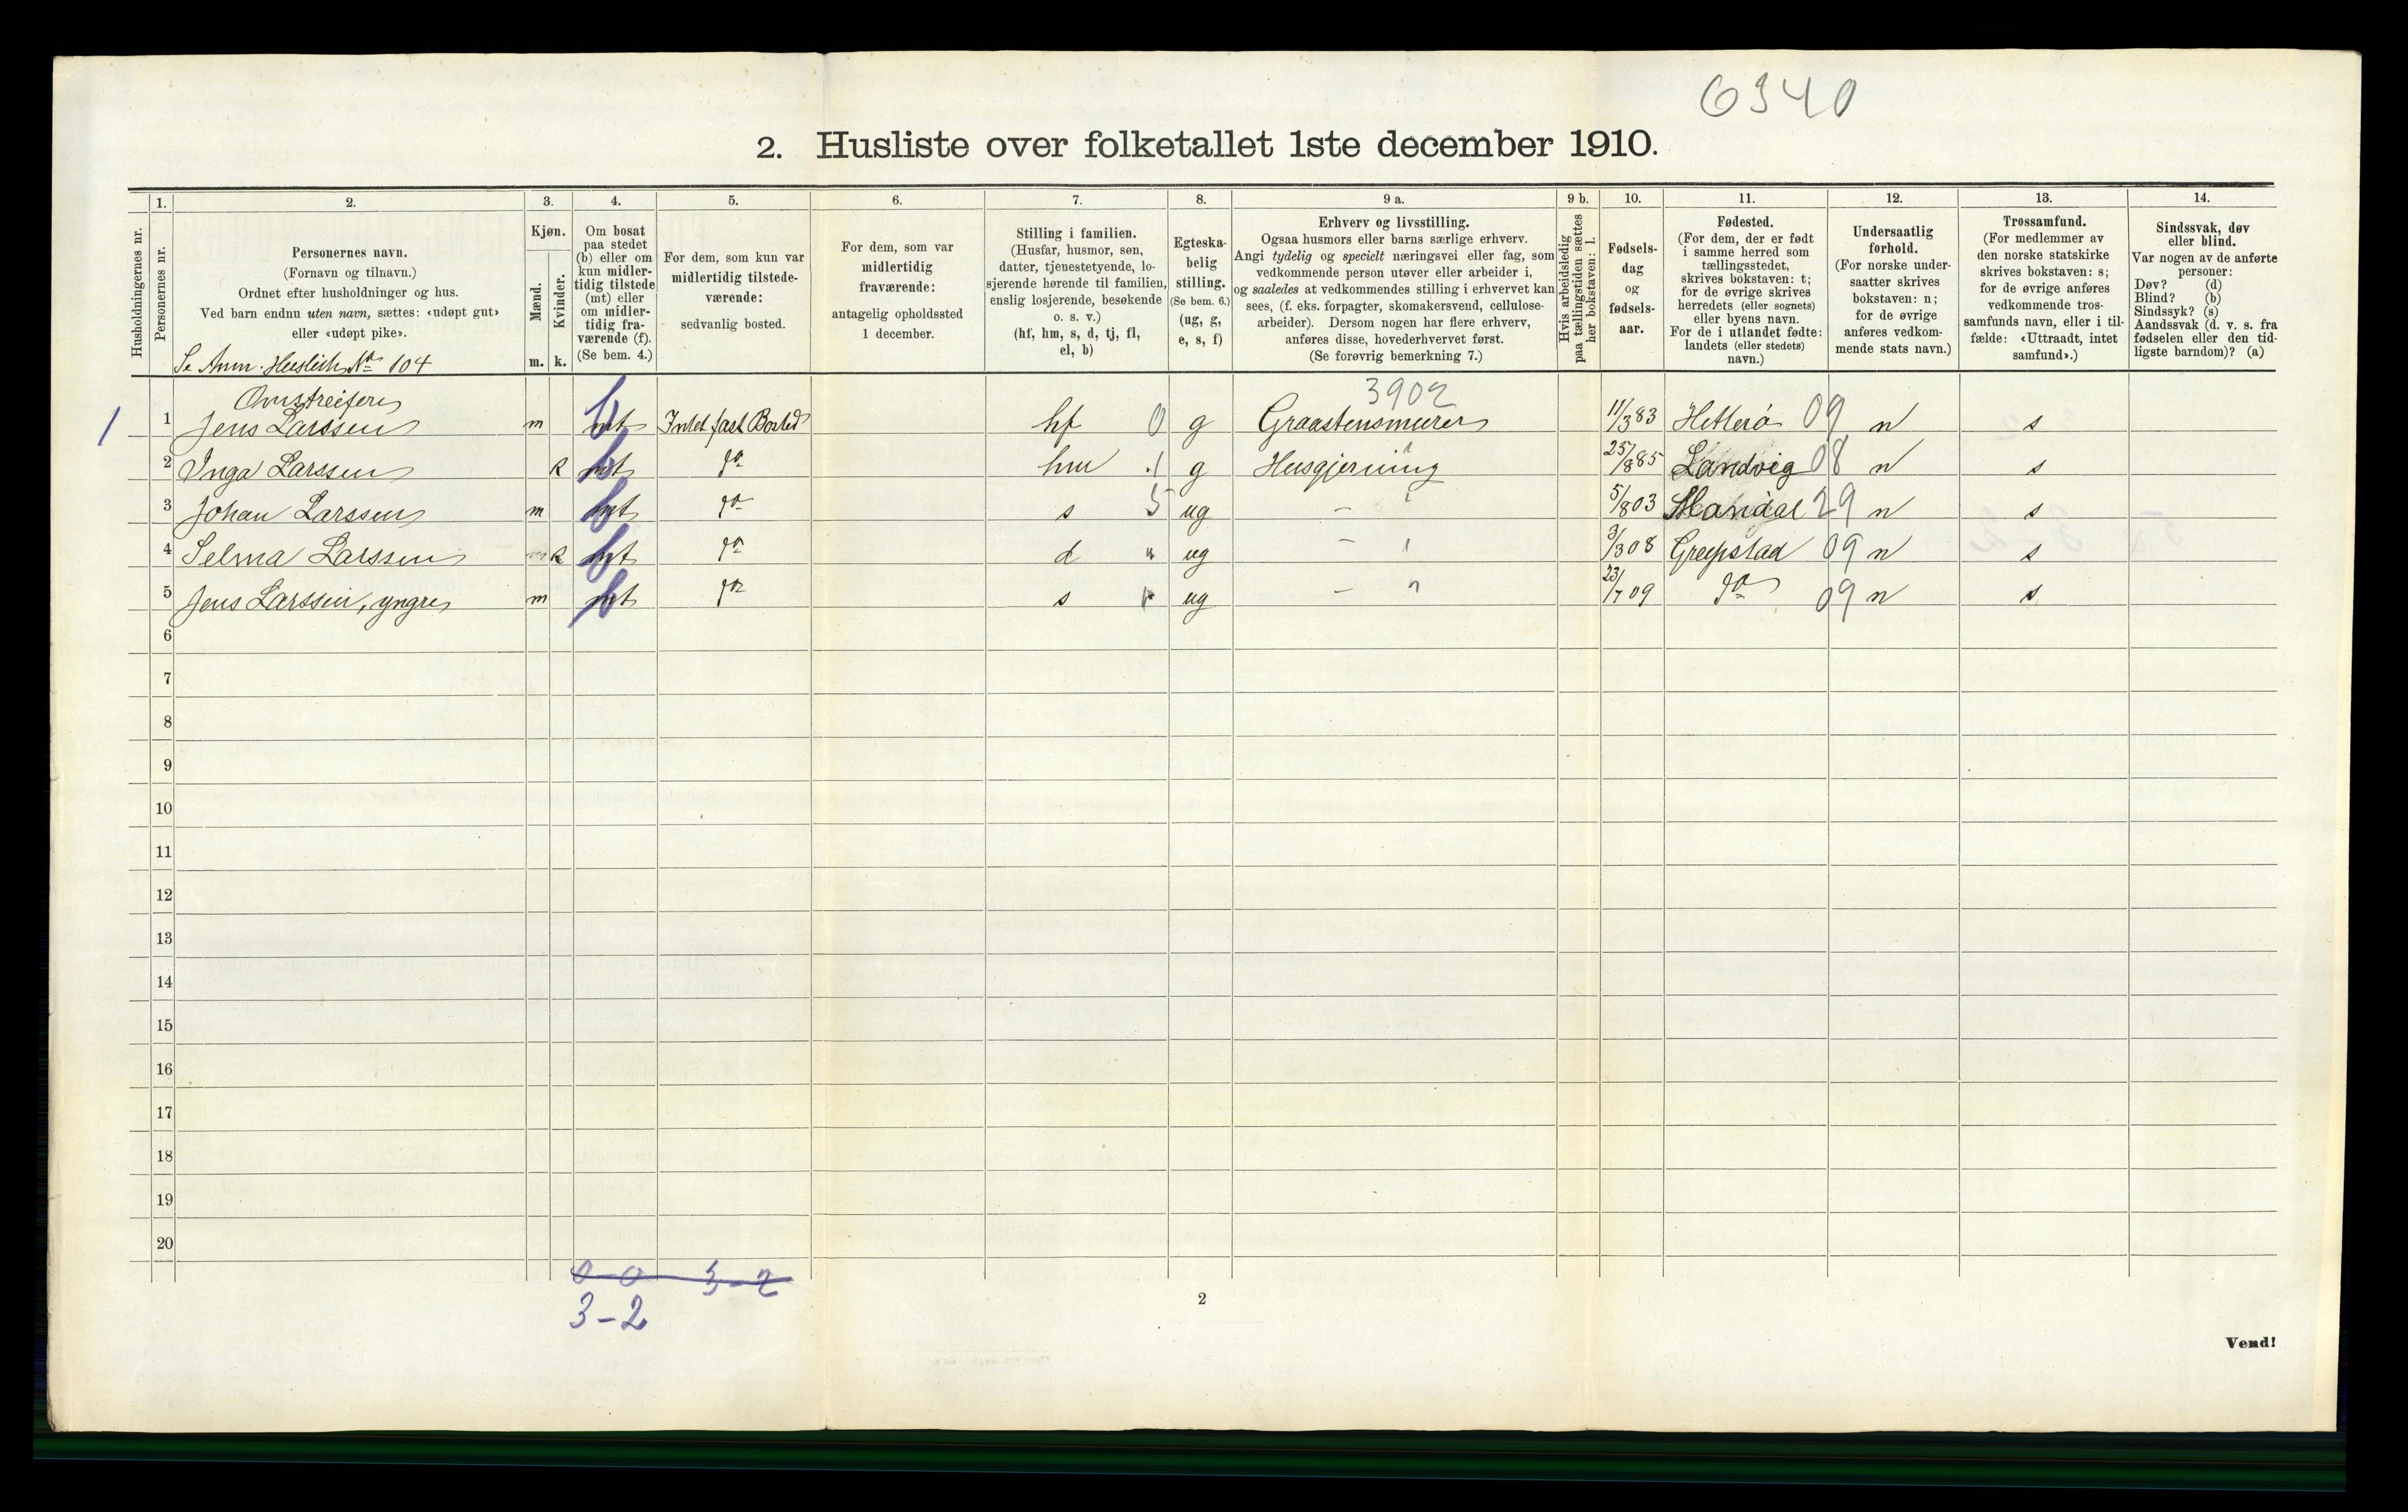 6340
2. Husliste over folketallet 1ste december 1910.
1. 2. 3. 4. 5. 6. 7. 8. 9 a. 9 b. 10. 11. 12. 13. 14.
Husholdningernes nr.
Personernes nr.
Personernes navn.
(Fornavn og tilnavn.)
Ordnet efter husholdninger og hus.
Ved barn endnu uten navn, sættes: «udøpt gut»
eller «udøpt pike».
Se Anm. Huslisten No 104
Kjøn.
Mænd.
Kvinder.
m. k.
Om bosat
paa stedet
(b) eller om
kun midler-
tidig tilstede
(mt) eller
om midler-
tidig fra-
værende (f).
(Se bem. 4.)
For dem, som kun var
midlertidig tilstede-
værende:
sedvanlig bosted.
For dem, som var
midlertidig
fraværende:
antagelig opholdssted
1 december.
Stilling i familien.
(Husfar, husmor, søn,
datter, tjenestetyende, lo-
sjerende hørende til familien,
enslig losjerende, besøkende
o. s. v.)
(hf, hm, s, d, tj, fl,
el, b)
Egteska-
belig
stilling.
(Se bem. 6.)
(ug, g,
e, s, f)
Erhverv og livsstilling.
Ogsaa husmors eller barns særlige erhverv.
Angi tydelig og specielt næringsvei eller fag, som
vedkommende person utøver eller arbeider i,
og saaledes at vedkommendes stilling i erhvervet kan
sees, (f. eks. forpagter, skomakersvend, cellulose-
arbeider). Dersom nogen har flere erhverv,
anføres disse, hovederhvervet først.
(Se forøvrig bemerkning 7.)
Hvis arbeidsledig
paa tællingstiden sættes
her bokstaven: l.
Fødsels-
dag
og
fødsels-
aar.
Fødested.
(For dem, der er født
i samme herred som
tællingsstedet,
skrives bokstaven: t;
for de øvrige skrives
herredets (eller sognets)
eller byens navn.
For de i utlandet fødte:
landets (eller stedets)
navn.)
Undersaatlig
forhold.
(For norske under-
saatter skrives
bokstaven: n;
for de øvrige
anføres vedkom-
mende stats navn.)
Trossamfund.
(For medlemmer av
den norske statskirke
skrives bokstaven: s;
for de øvrige anføres
vedkommende tros-
samfunds navn, eller i til-
fælde: «Uttraadt, intet
samfund».)
Sindssvak, døv
eller blind.
Var nogen av de anførte
personer:
Døv? (d)
Blind? (b)
Sindssyk? (s)
Aandssvak (d. v. s. fra
fødselen eller den tid-
ligste barndom)? (a)
Omstreifere 3902
1 1 Jens Larssen m mt b Intet fast Bosted hf 0 g Graastensmurer 11/3 83 Hitterø 09 n s
2 Inga Larssen k mt b do hm 1 g Husgjerning 25/8 85 Landvig 08 n s
3 Johan Larssen m mt b do s 5 ug - 5/8 03 Mandal 29 n s
4 Selma Larssen k mt b do d " ug - 3/3 08 Greipstad 09 n s
5 Jens Larssen, yngre m mt b do s " ug - 23/7 09 do 09 n s
6
7
8
9
10
11
12
13
14
15
16
17
18
19
20
0-0 3-2
3-2
2
Vend!